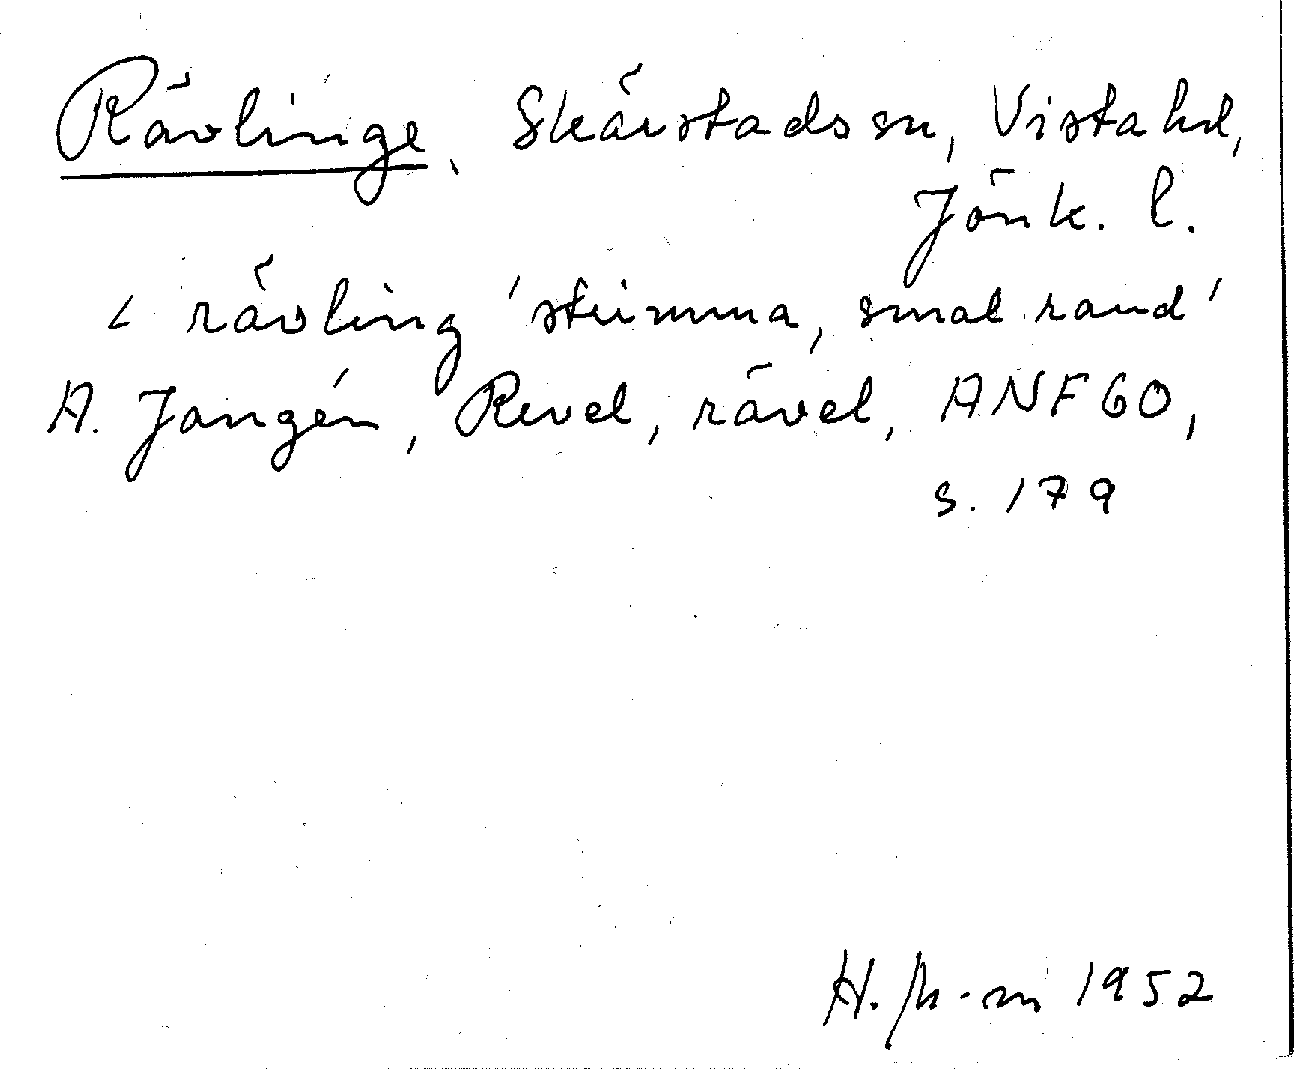 Rävlinge, Skärstads sn, Vista hd,
Jönk. l.
< rävling 'strimma, smal rand'
A. Jangén, Revel, rävel, ANF 60,
s. 179
1952